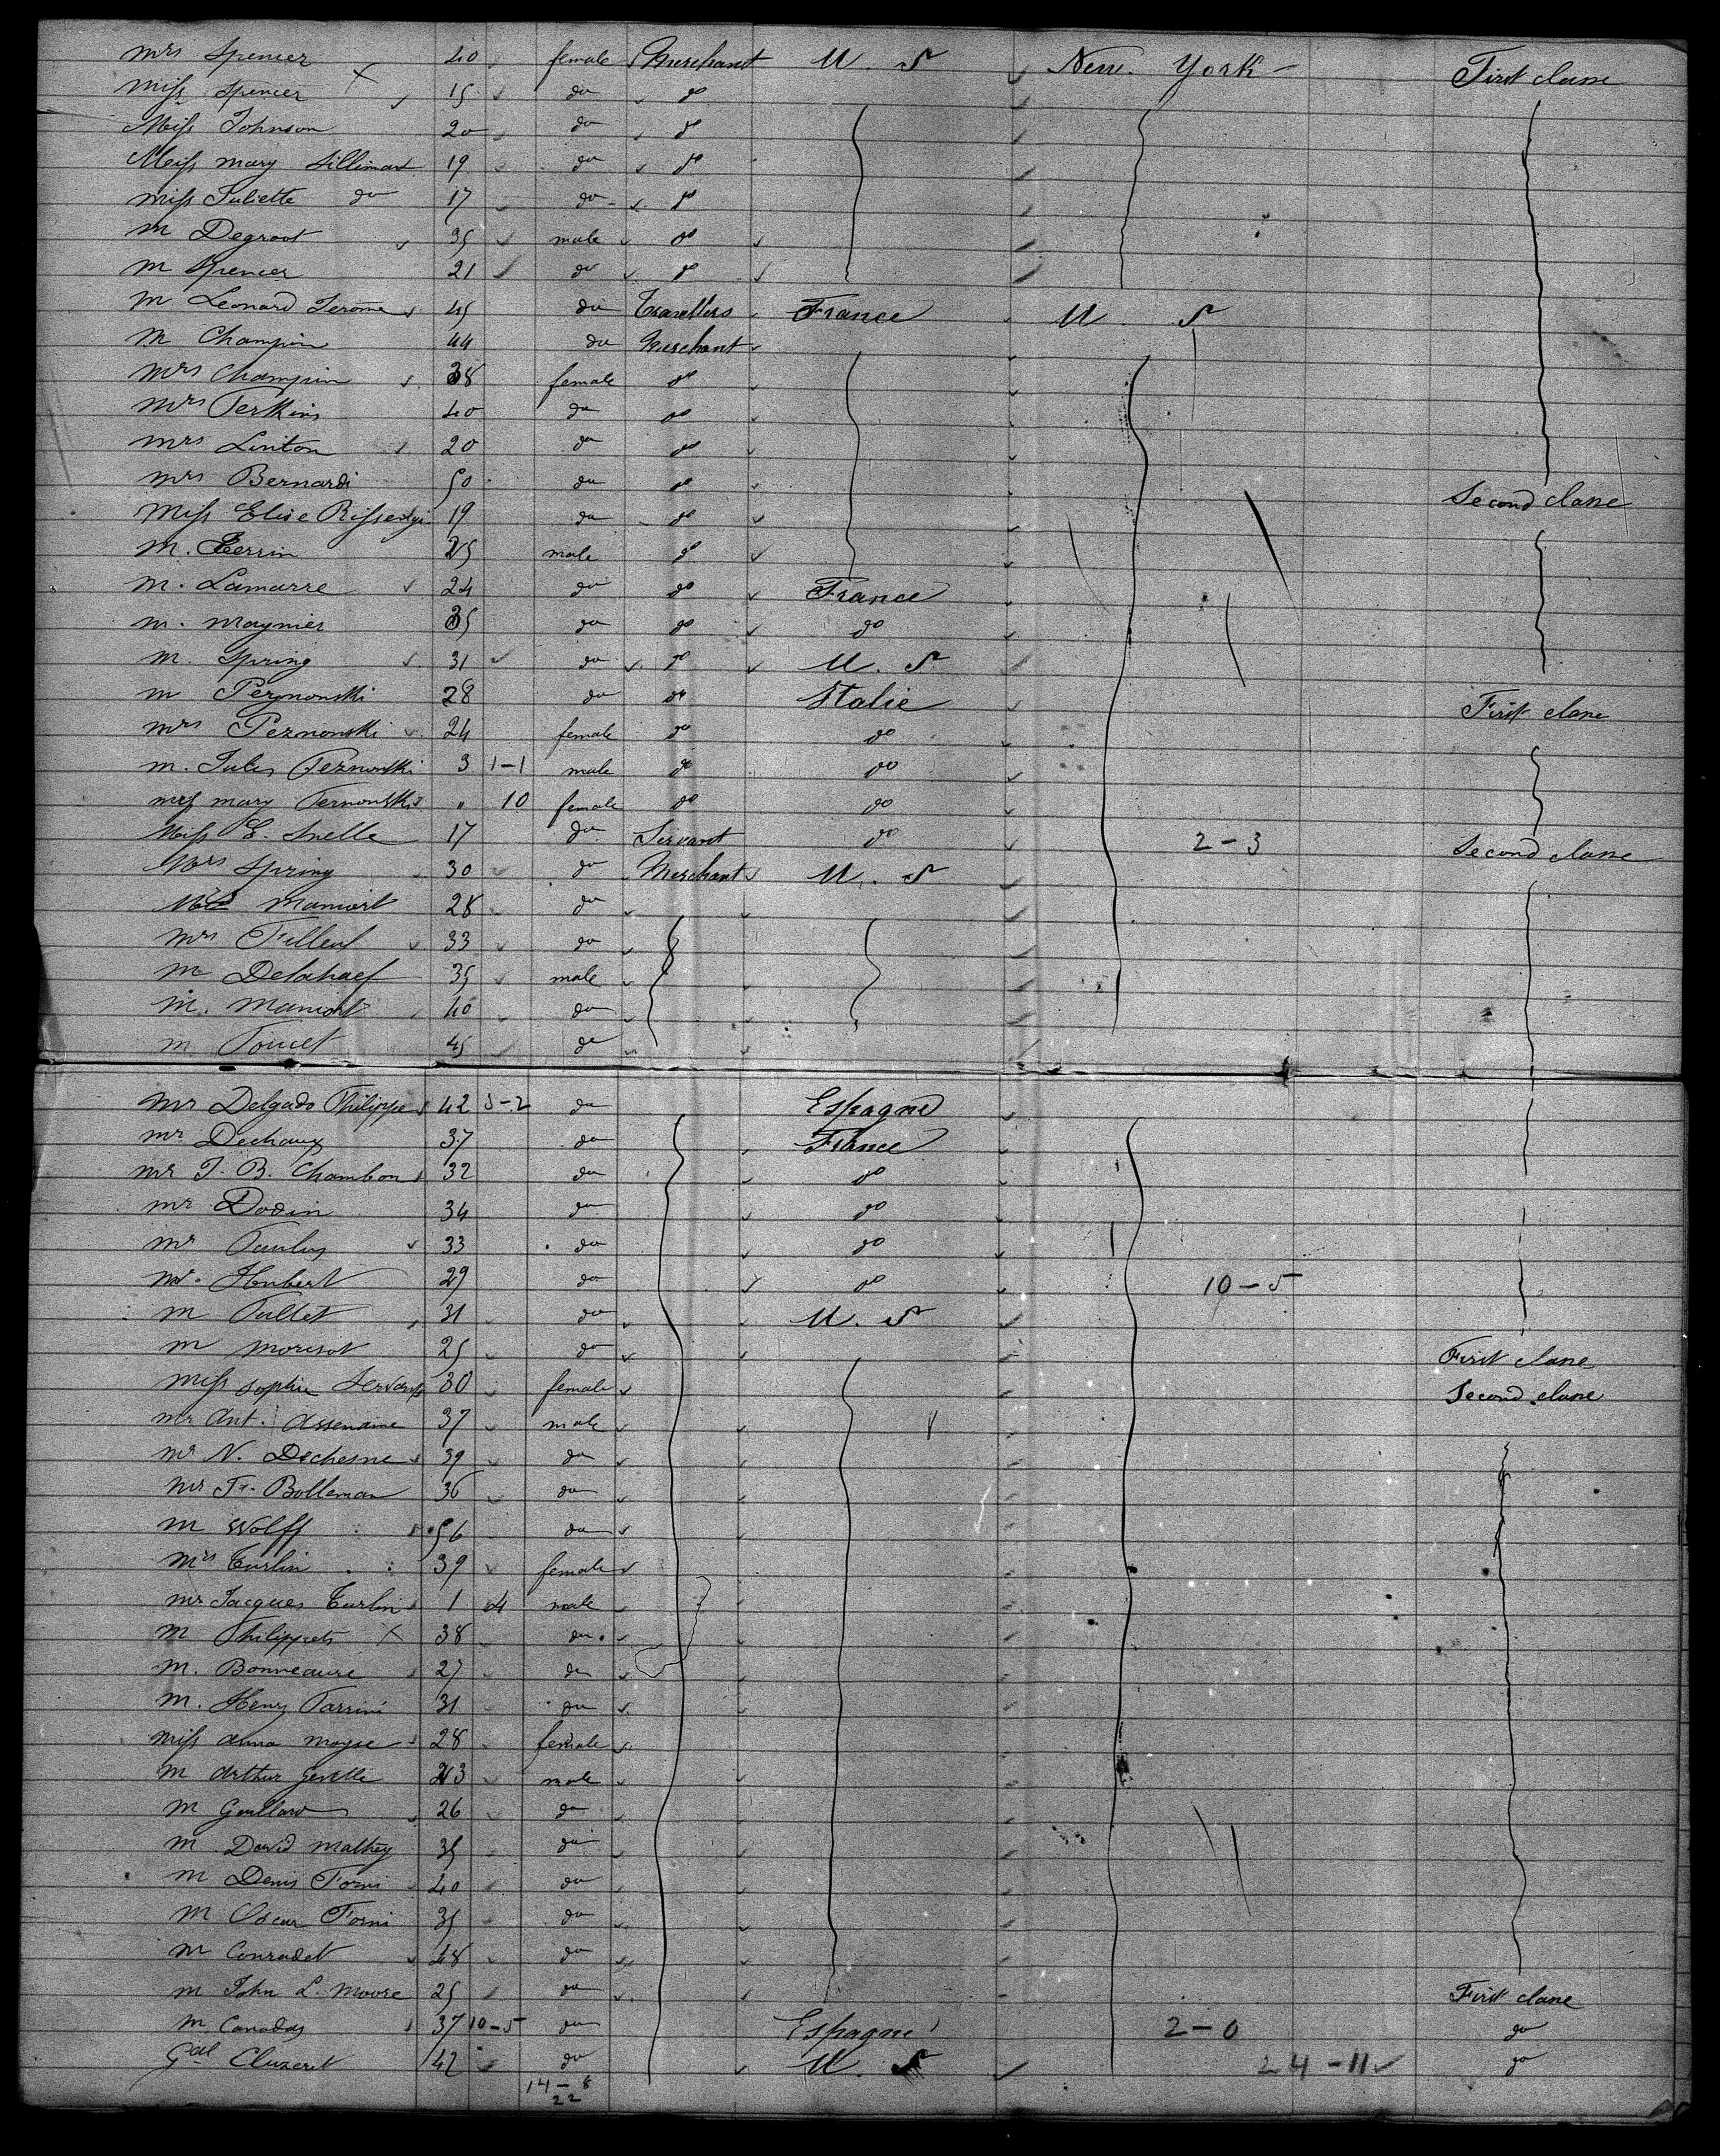 Mrs Spencer 40 female Merchant U. S New York First classe
Miss Spencer 15 do do
Miss Johnson 20 do do
Miss Mary Silliman 19 do do
Miss Juliette do 17 do do
M Degroot 35 male do
M Spencer 21 do do
M Leonard Jerome 45 do Travellers France U. S
M Champin 44 do Merchant
Mrs Champin 38 female do
Mrs Perkins 40 do do
Mrs Linton 20 do do
Mrs Bernardi 50 do do Second classe
Miss Elise 19 do do
M. Perrin 25 male do
M. Lamarre 24 do do France
M. Magnier 35 do do do
M. Spring 31 do do U. S
M Peznonski 28 do do Italie First classe
Mrs Peznonski 24 female do do
M. Jules Peznonski 3 1-1 male do do
Miss Mary Pernonski " 10 female do do
Miss E. Snelle 17 do Servant do 2-3 Second classe
Mrs Spring 30 do Merchant U. S
Mamiort 28 do
Mrs Filleul 33 do
M Delahaef 35 male
M. Mamiort 40 do
M Poucet 45 do
Mr Delgado Philippe 42 5-2 do Espagne
Mr Dechaux 37 do France
Mr J. B. Chambon 32 do do
Mr Dodin 34 do do
Mr Paulus 33 do do
Mr. Hubert 29 do do 10-5
M Pullet 31 do U. S
M Morisot 25 do First classe
Miss Sophie Servant 30 female Second classe
Mr Ant. Assename 37 male
Mr N. Dechesne 39 do
Mr Fr. Bolleman 36 do
M Wolff 56 do
Mrs Turlin 39 female
Mr Jacques Turlin 1 4 male
M Philippets 38 do
M. Bonneaure 27 do
M. Henry Parrini 31 do
Miss Anna Moyse 28 female
M Arthur Gerelle 23 male
M Gaillard 26 do
M David Mathey 35 do
M Denis Forni 40 do
M Oscar Forni 35 do
M Conradet 48 do
M John L. Moore 25 do First classe
M. Canadas 37 10-5 do Espagne 2-0 do
Gal Cluzeret 42 do U. S 24-11 do
14-8
22